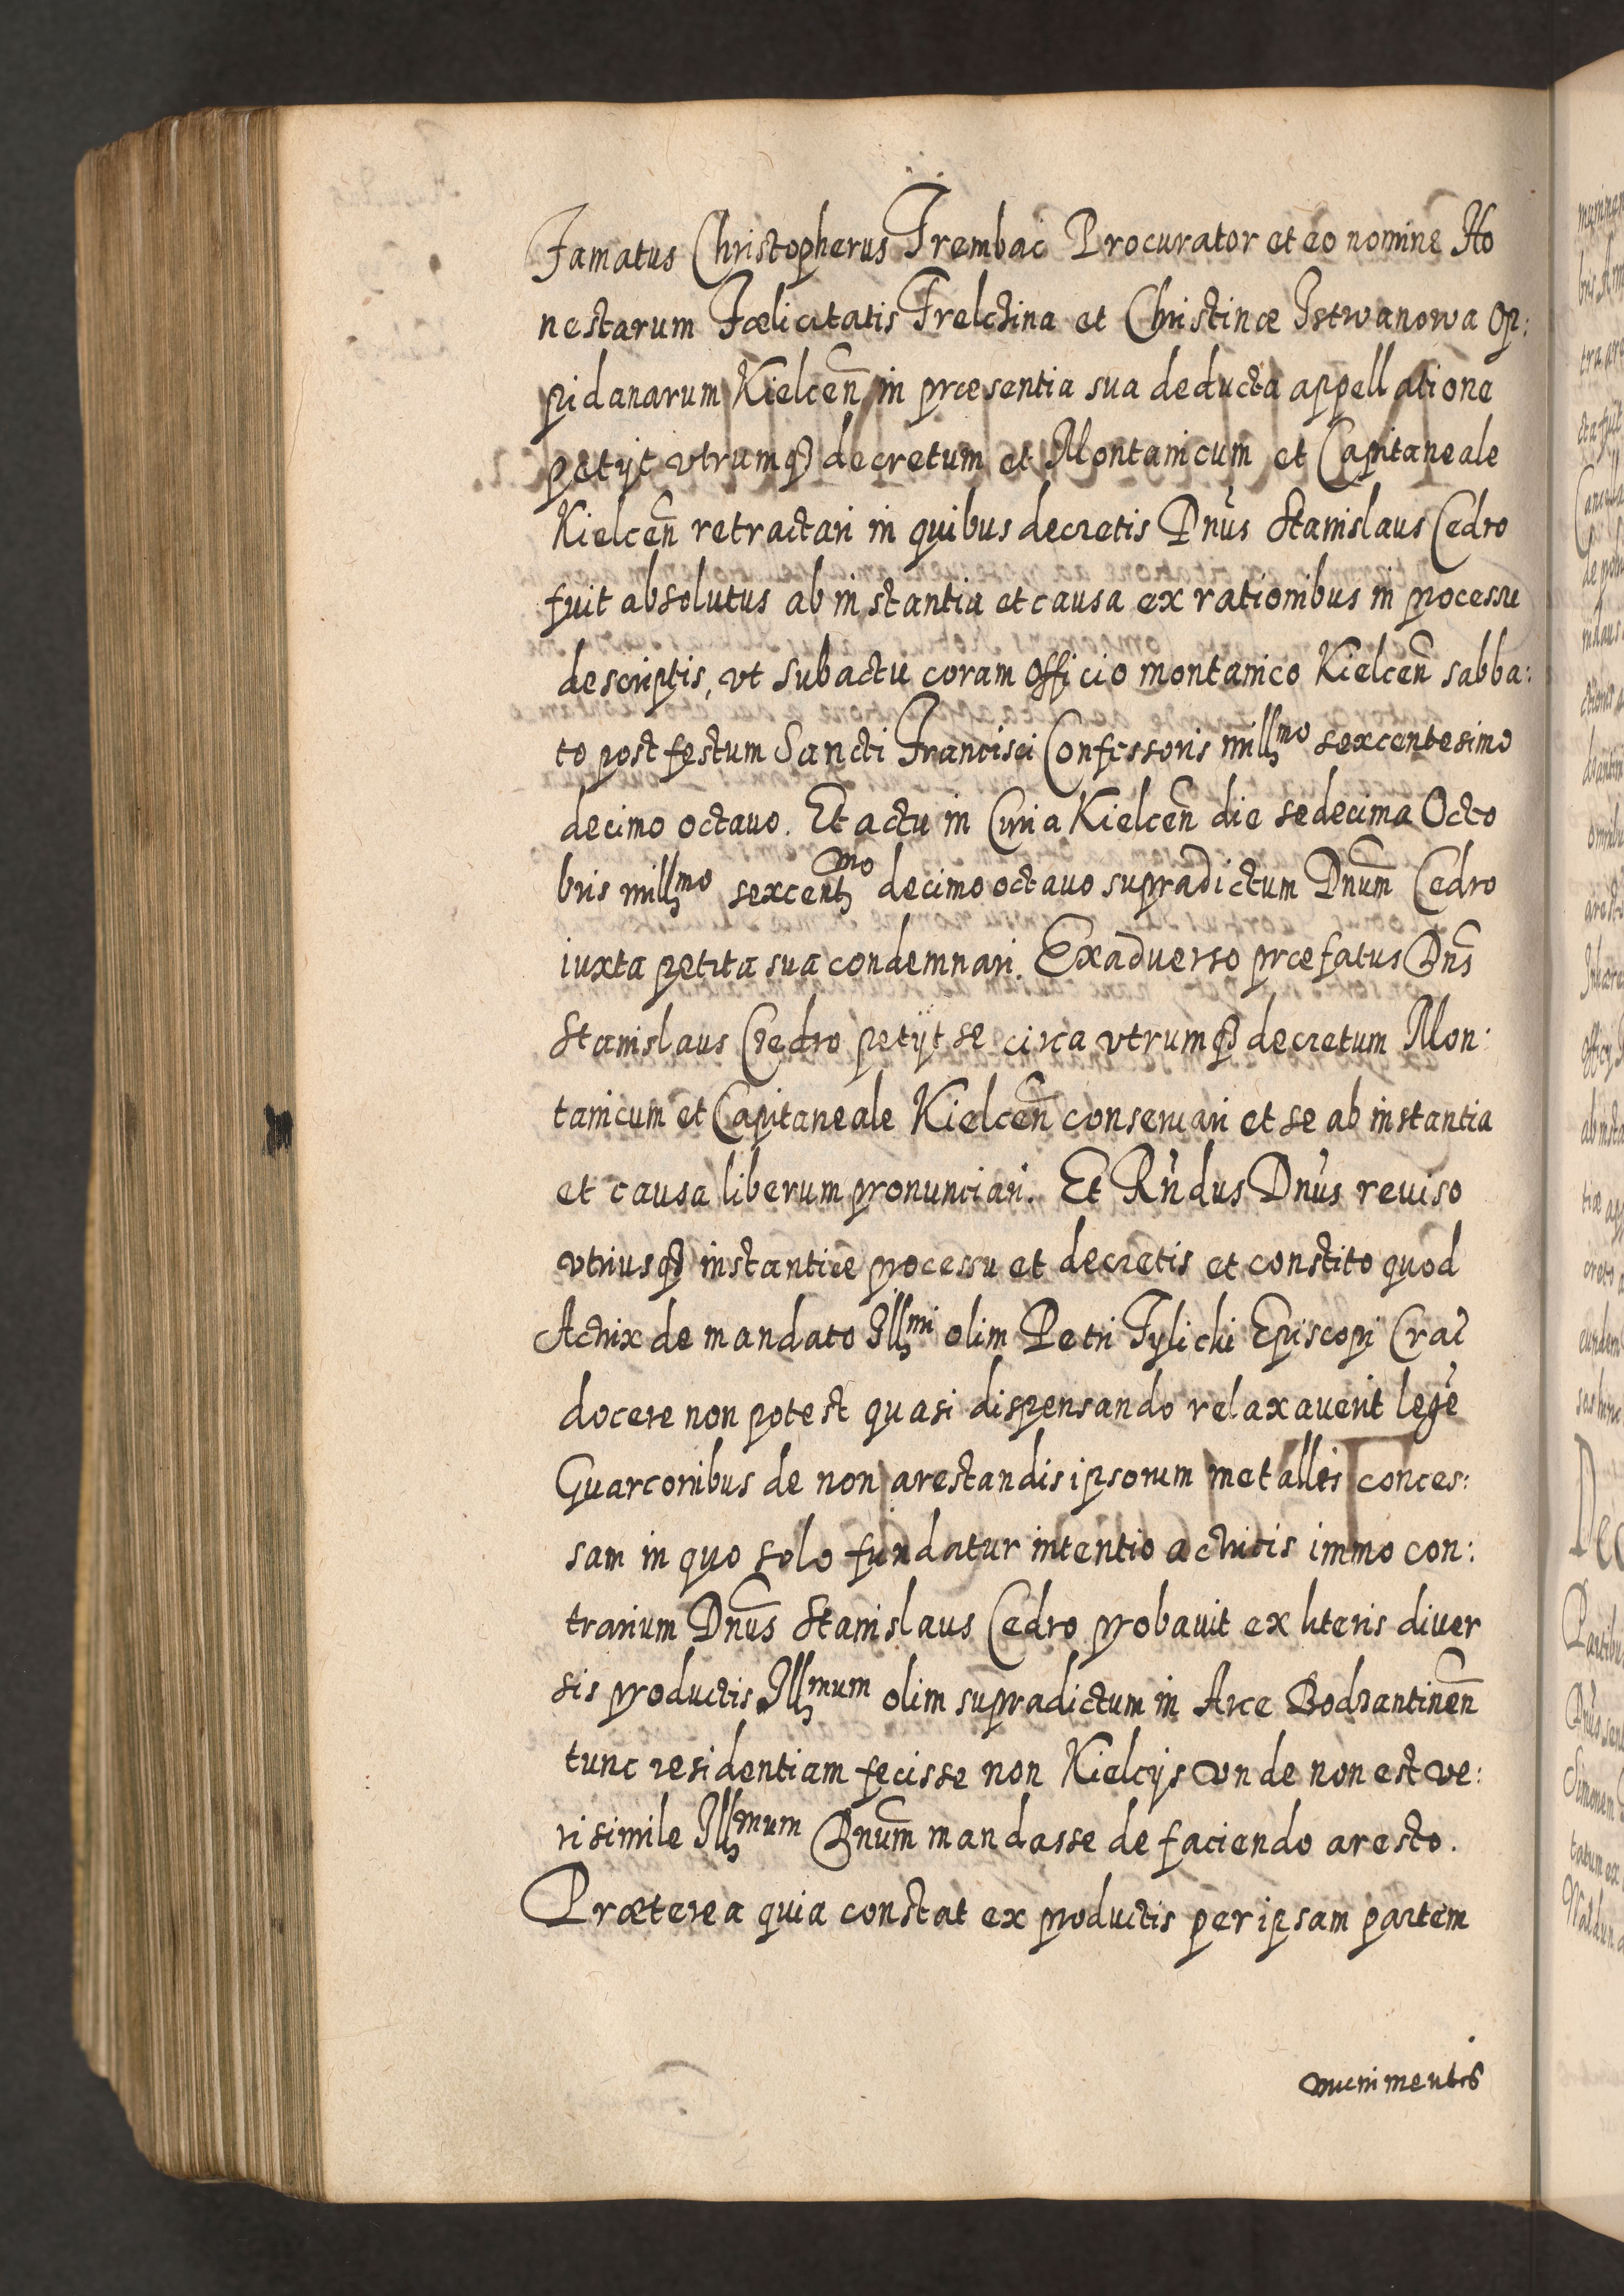 Famatus Christopherus Trembac Procurator et eo nomine Ho
nestarum Fœlicitatis Frelchina et Christinæ Istwanowa Op:
pidanarum Kielcen̄ in præsentia sua deducta appellatione
petijt vtrumq₃ decretum et Montanicum et Capitaneale
Kielcen̄ retractari in quibus decretis Dn̄us Stanislaus Cedro
fuit absolutus ab instantia et causa ex rationibus in processu
descriptis, vt sub actu coram Officio montanico Kielcen̄ sabba:
to post festum Sancti Francisci Confessoris mill̄mo sexcentesimo
decimo octauo. Et actu in Curia Kielcen̄ die sedecima Octo
bris mill̄mo sexcentmo decimo octauo supradictum Dn̄um Cedro
iuxta petita sua condemnari. Ex aduerso præfatus Dn̄s
Stanislaus Cedro petijt se circa vtrumq₃ decretum Mon:
tanicum et Capitaneale Kielcen̄ conseruari et se ab instantia
et causa liberum pronunciari. Et Rn̄dus Dn̄us reuiso
vtriusq₃ instantiæ processu et decretis et constito quod
Actrix de mandato Illmi olim Petri Tylicki Episcopi Crac̄
docere non potest quasi dispensando relaxauerit legē
Guarconibus de non arestandis ipsorum metallis conces:
sam in quo solo fundatur intentio actricis immo con:
trarium Dn̄us Stanislaus Cedro probauit ex literis diuer
sis productis Illmum olim supradictum in Arce Bodzantinen̄
tunc residentiam fecisse non Kielcijs vnde non est ve:
risimile Illmum Dn̄um mandasse de faciendo aresto.
Præterea quia constat ex productis per ipsam partem
munimentis